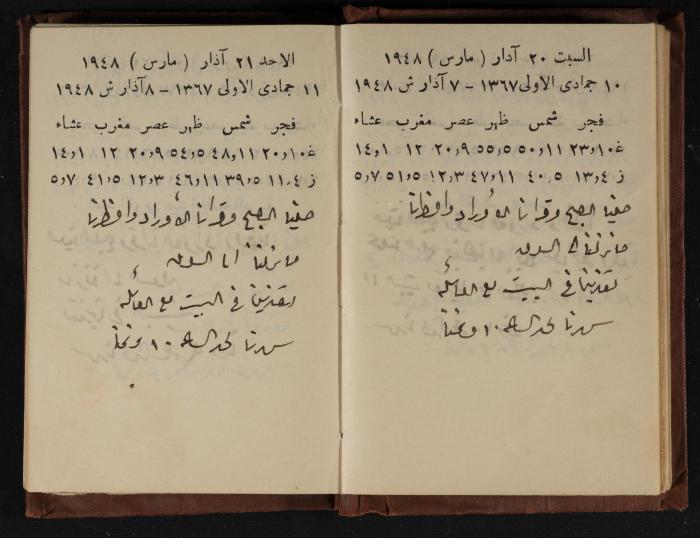 السبت ٢٠ آذار ( مارس ) ١٩٤٨
١٠ جمادى الاولى ١٣٦٧ - ٧ آذار ش ١٩٤٨
فجر شمس ظهر عصر مغرب عشاء
غ ١٠٫٢٣ ١١٫٥٠ ٥٫٥٥ ٩٫٢٠ ١٢ ١٫١٤
ز ٤٫١٣ ٥٫٤٠ ١١٫٤٧ ٣٫١٢ ٥٫٥١ ٧٫٥
صلينا الصبح وقرأنا الأوراد وافطرنا
ما نزلنا الى السوق
تغدينا في البيت مع العائلة
سهرنا لحد الساعة ١٠ ونمنا
الاحد ٢١ آذار ( مارس ) ١٩٤٨
١١ جمادى الاولى ١٣٦٧ - ٨ آذار ش ١٩٤٨
فجر شمس ظهر عصر مغرب عشاء
غ ١٠٫٢٠ ١١٫٤٨ ٥٫٥٤ ٩٫٢٠ ١٢ ١٫١٤
ز ٤٫١١ ٥٫٣٩ ١١٫٤٦ ٣٫١٢ ٥٫٤١ ٧٫٥
صلينا الصبح وقرأنا الأوراد وافطرنا
ما نزلنا السوق
تغدينا في البيت مع العائلة
سهرنا لحد الساعة ١٠ ونمنا